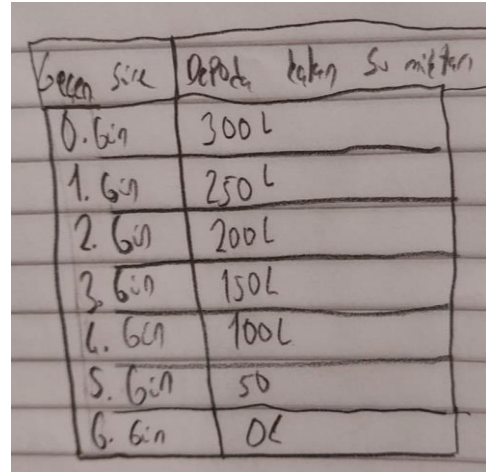 Geçen süre Depoda kalan su miktarı
0. Gün 300 L
1. Gün 250 L
2. Gün 200 L
3. Gün 150 L
4. Gün 100 L
5. Gün 50
6. Gün 0 L